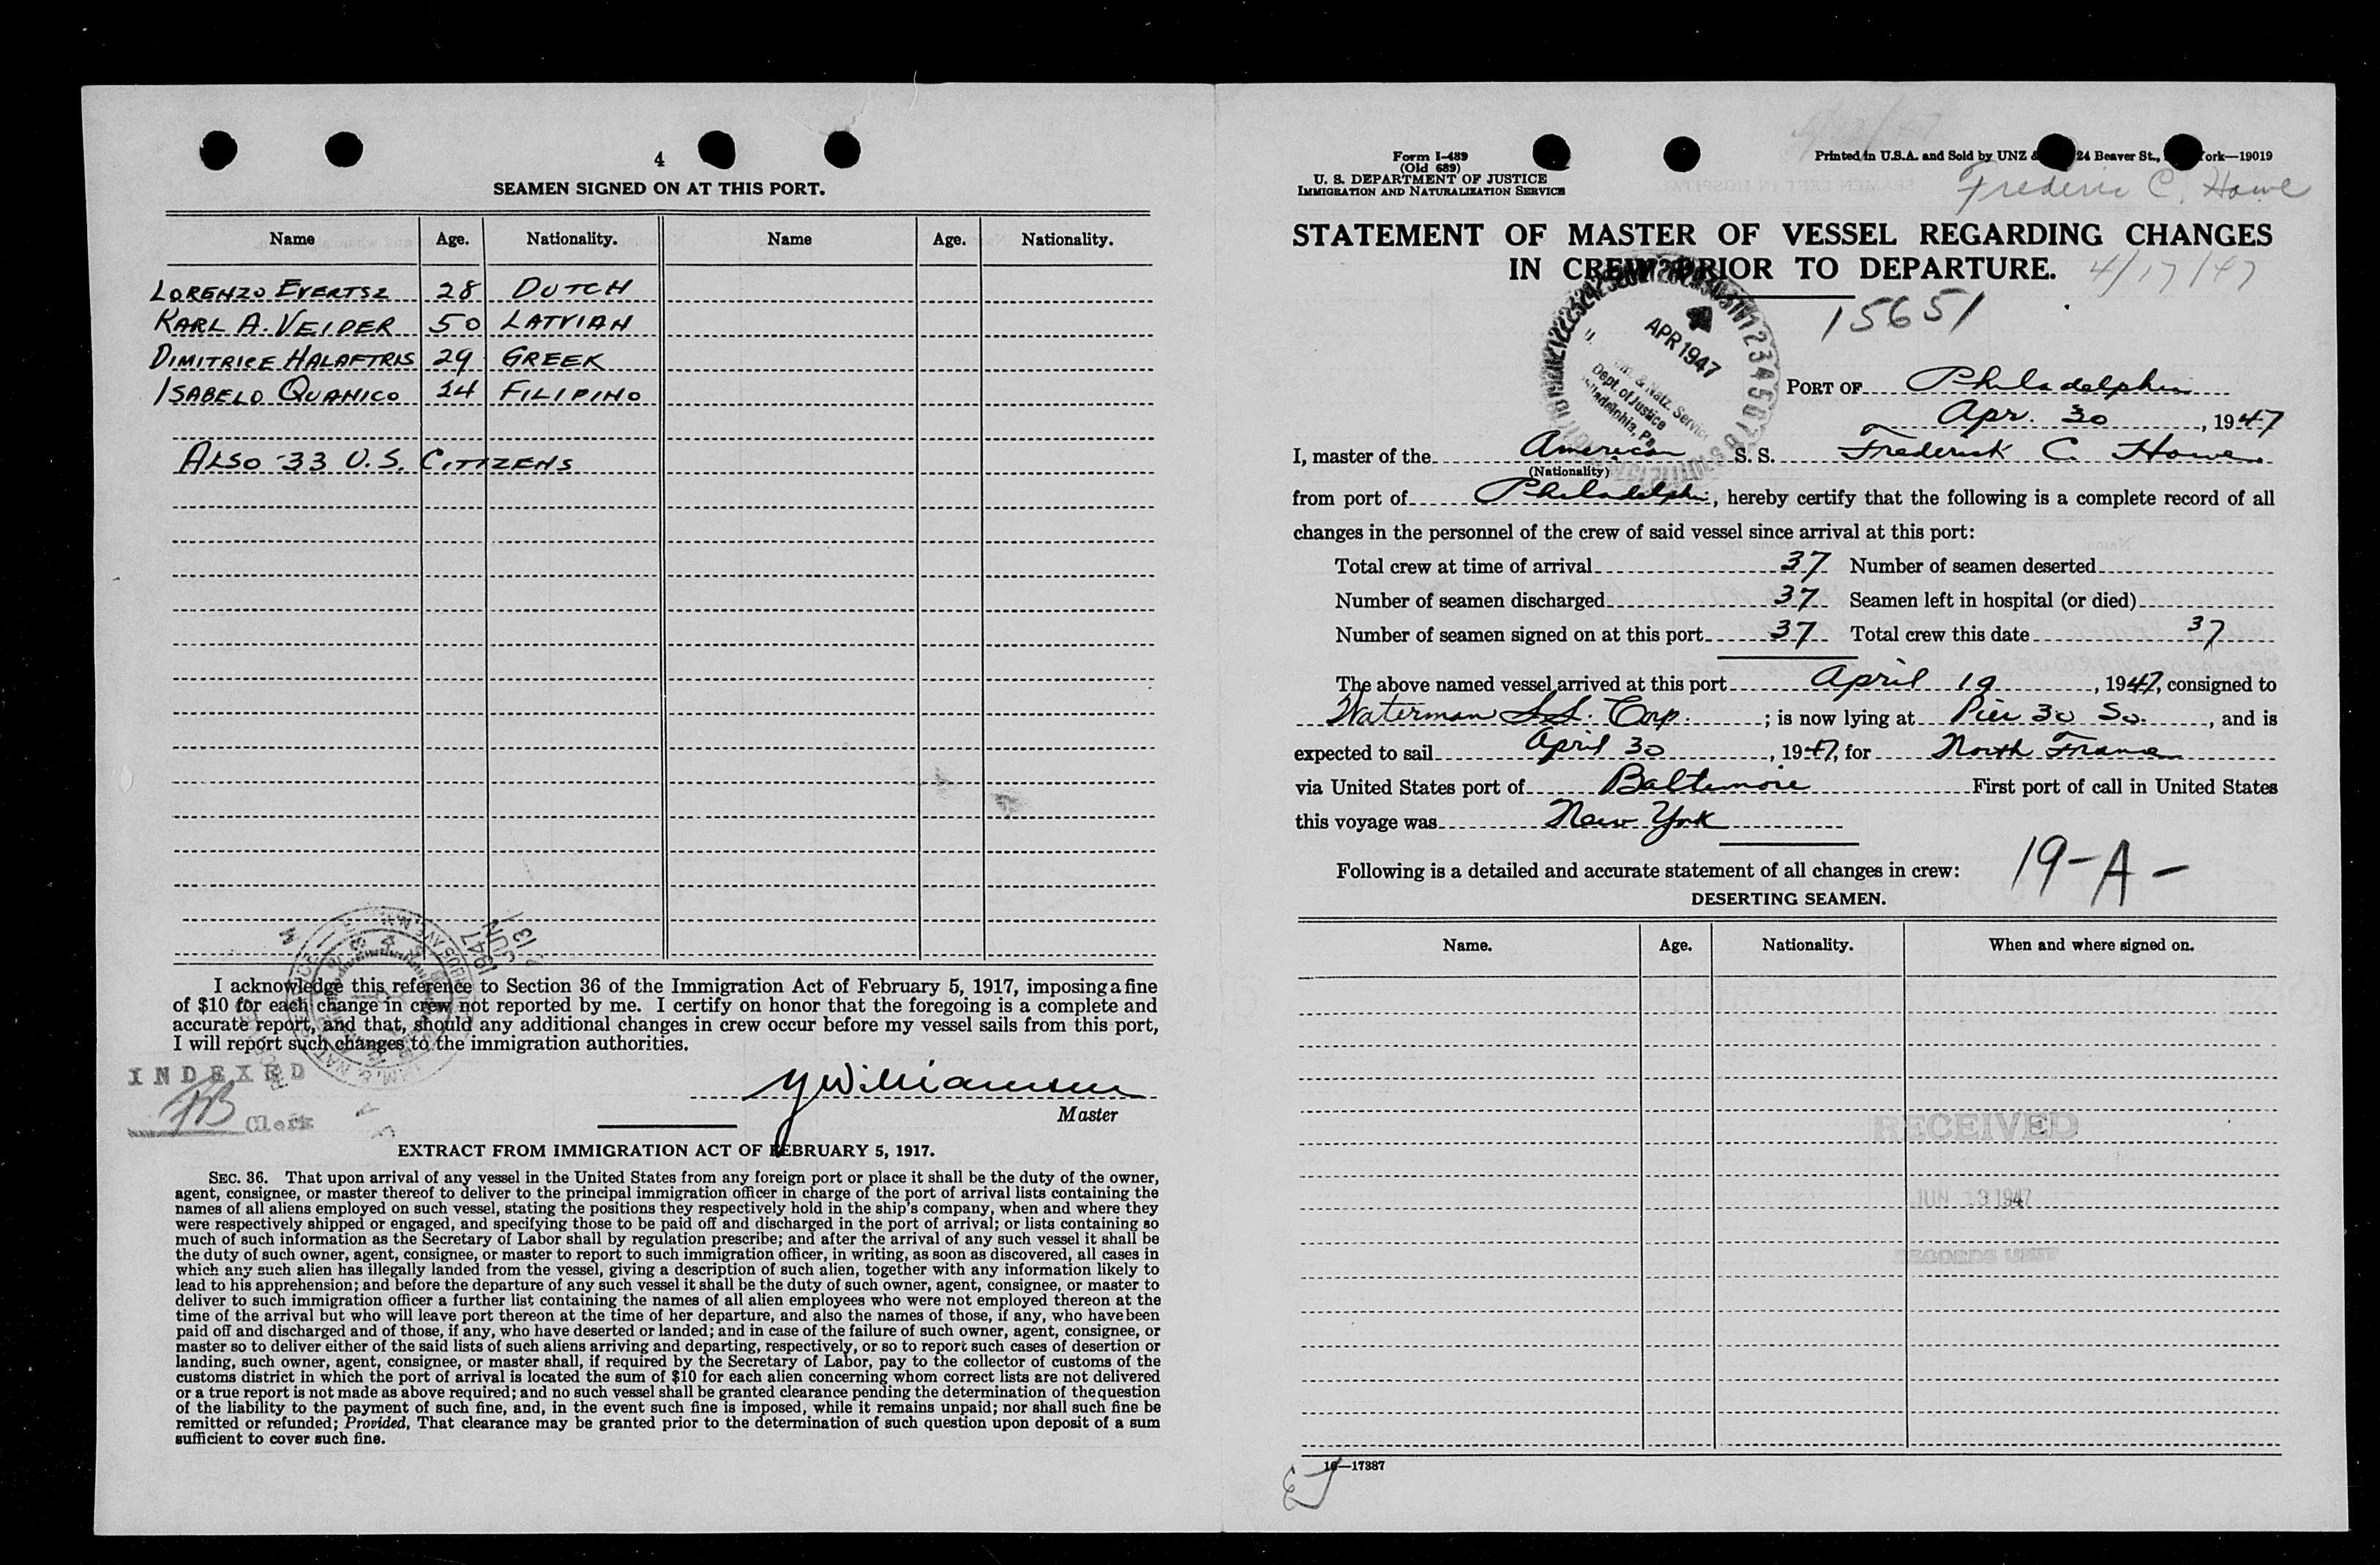 4
SEAMEN SIGNED ON AT THIS PORT.
Name Age. Nationality. Name Age. Nationality.
LORENZO EVERTSZ 28 DUTCH
KARL A. VEIDER 50 LATVIAN
DIMITRICE HALAFTRIS 29 GREEK
ISABELO QUANICO 24 FILIPINO
ALSO 33 U.S. CITIZENS
I acknowledge this reference to Section 36 of the Immigration Act of February 5, 1917, imposing a fine
of $10 for each change in crew not reported by me. I certify on honor that the foregoing is a complete and
accurate report, and that, should any additional changes in crew occur before my vessel sails from this port,
I will report such changes to the immigration authorities.
INDEXED
Clerk
Master
EXTRACT FROM IMMIGRATION ACT OF FEBRUARY 5, 1917.
SEC. 36. That upon arrival of any vessel in the United States from any foreign port or place it shall be the duty of the owner,
agent, consignee, or master thereof to deliver to the principal immigration officer in charge of the port of arrival lists containing the
names of all aliens employed on such vessel, stating the positions they respectively hold in the ship's company, when and where they
were respectively shipped or engaged, and specifying those to be paid off and discharged in the port of arrival; or lists containing so
much of such information as the Secretary of Labor shall by regulation prescribe; and after the arrival of any such vessel it shall be
the duty of such owner, agent, consignee, or master to report to such immigration officer, in writing, as soon as discovered, all cases in
which any such alien has illegally landed from the vessel, giving a description of such alien, together with any information likely to
lead to his apprehension; and before the departure of any such vessel it shall be the duty of such owner, agent, consignee, or master to
deliver to such immigration officer a further list containing the names of all alien employees who were not employed thereon at the
time of the arrival but who will leave port thereon at the time of her departure, and also the names of those, if any, who have been
paid off and discharged and of those, if any, who have deserted or landed; and in case of the failure of such owner, agent, consignee, or
master so to deliver either of the said lists of such aliens arriving and departing, respectively, or so to report such cases of desertion or
landing, such owner, agent, consignee, or master shall, if required by the Secretary of Labor, pay to the collector of customs of the
customs district in which the port of arrival is located the sum of $10 for each alien concerning whom correct lists are not delivered
or a true report is not made as above required; and no such vessel shall be granted clearance pending the determination of the question
of the liability to the payment of such fine, and, in the event such fine is imposed, while it remains unpaid; nor shall such fine be
remitted or refunded; Provided, That clearance may be granted prior to the determination of such question upon deposit of a sum
sufficient to cover such fine.
Form I-489
(Old 689)
U. S. DEPARTMENT OF JUSTICE
IMMIGRATION AND NATURALIZATION SERVICE
Printed in U.S.A. and Sold by UNZ & 24 Beaver St., ork—19019
Frederic C. Howe
STATEMENT OF MASTER OF VESSEL REGARDING CHANGES
IN CREW PRIOR TO DEPARTURE.
4/17/47
15651
APR 1947
& Natz. Service
Dept. of Justice
Philadelphia, Pa.
PORT OF Philadelphia
Apr. 30, 1947
I, master of the American S. S. Frederick C. Howe
(Nationality)
from port of Philadelphia, hereby certify that the following is a complete record of all
changes in the personnel of the crew of said vessel since arrival at this port:
Total crew at time of arrival 37 Number of seamen deserted
Number of seamen discharged 37 Seamen left in hospital (or died)
Number of seamen signed on at this port 37 Total crew this date 37
The above named vessel arrived at this port April 19, 1947, consigned to
Waterman S.S. Corp.; is now lying at Pier 30 So., and is
expected to sail April 30, 1947, for North France
via United States port of Baltimore First port of call in United States
this voyage was New York
Following is a detailed and accurate statement of all changes in crew:
19-A-
DESERTING SEAMEN.
Name. Age. Nationality. When and where signed on.
RECEIVED
JUN 13 1947
RECORDS UNIT
16—17387